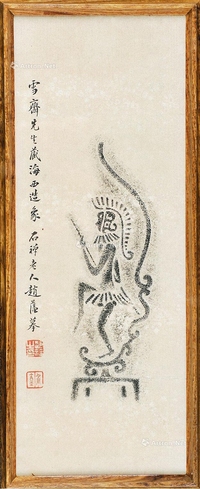 雪齋先生藏海西造象 石禪老人趙藩摹